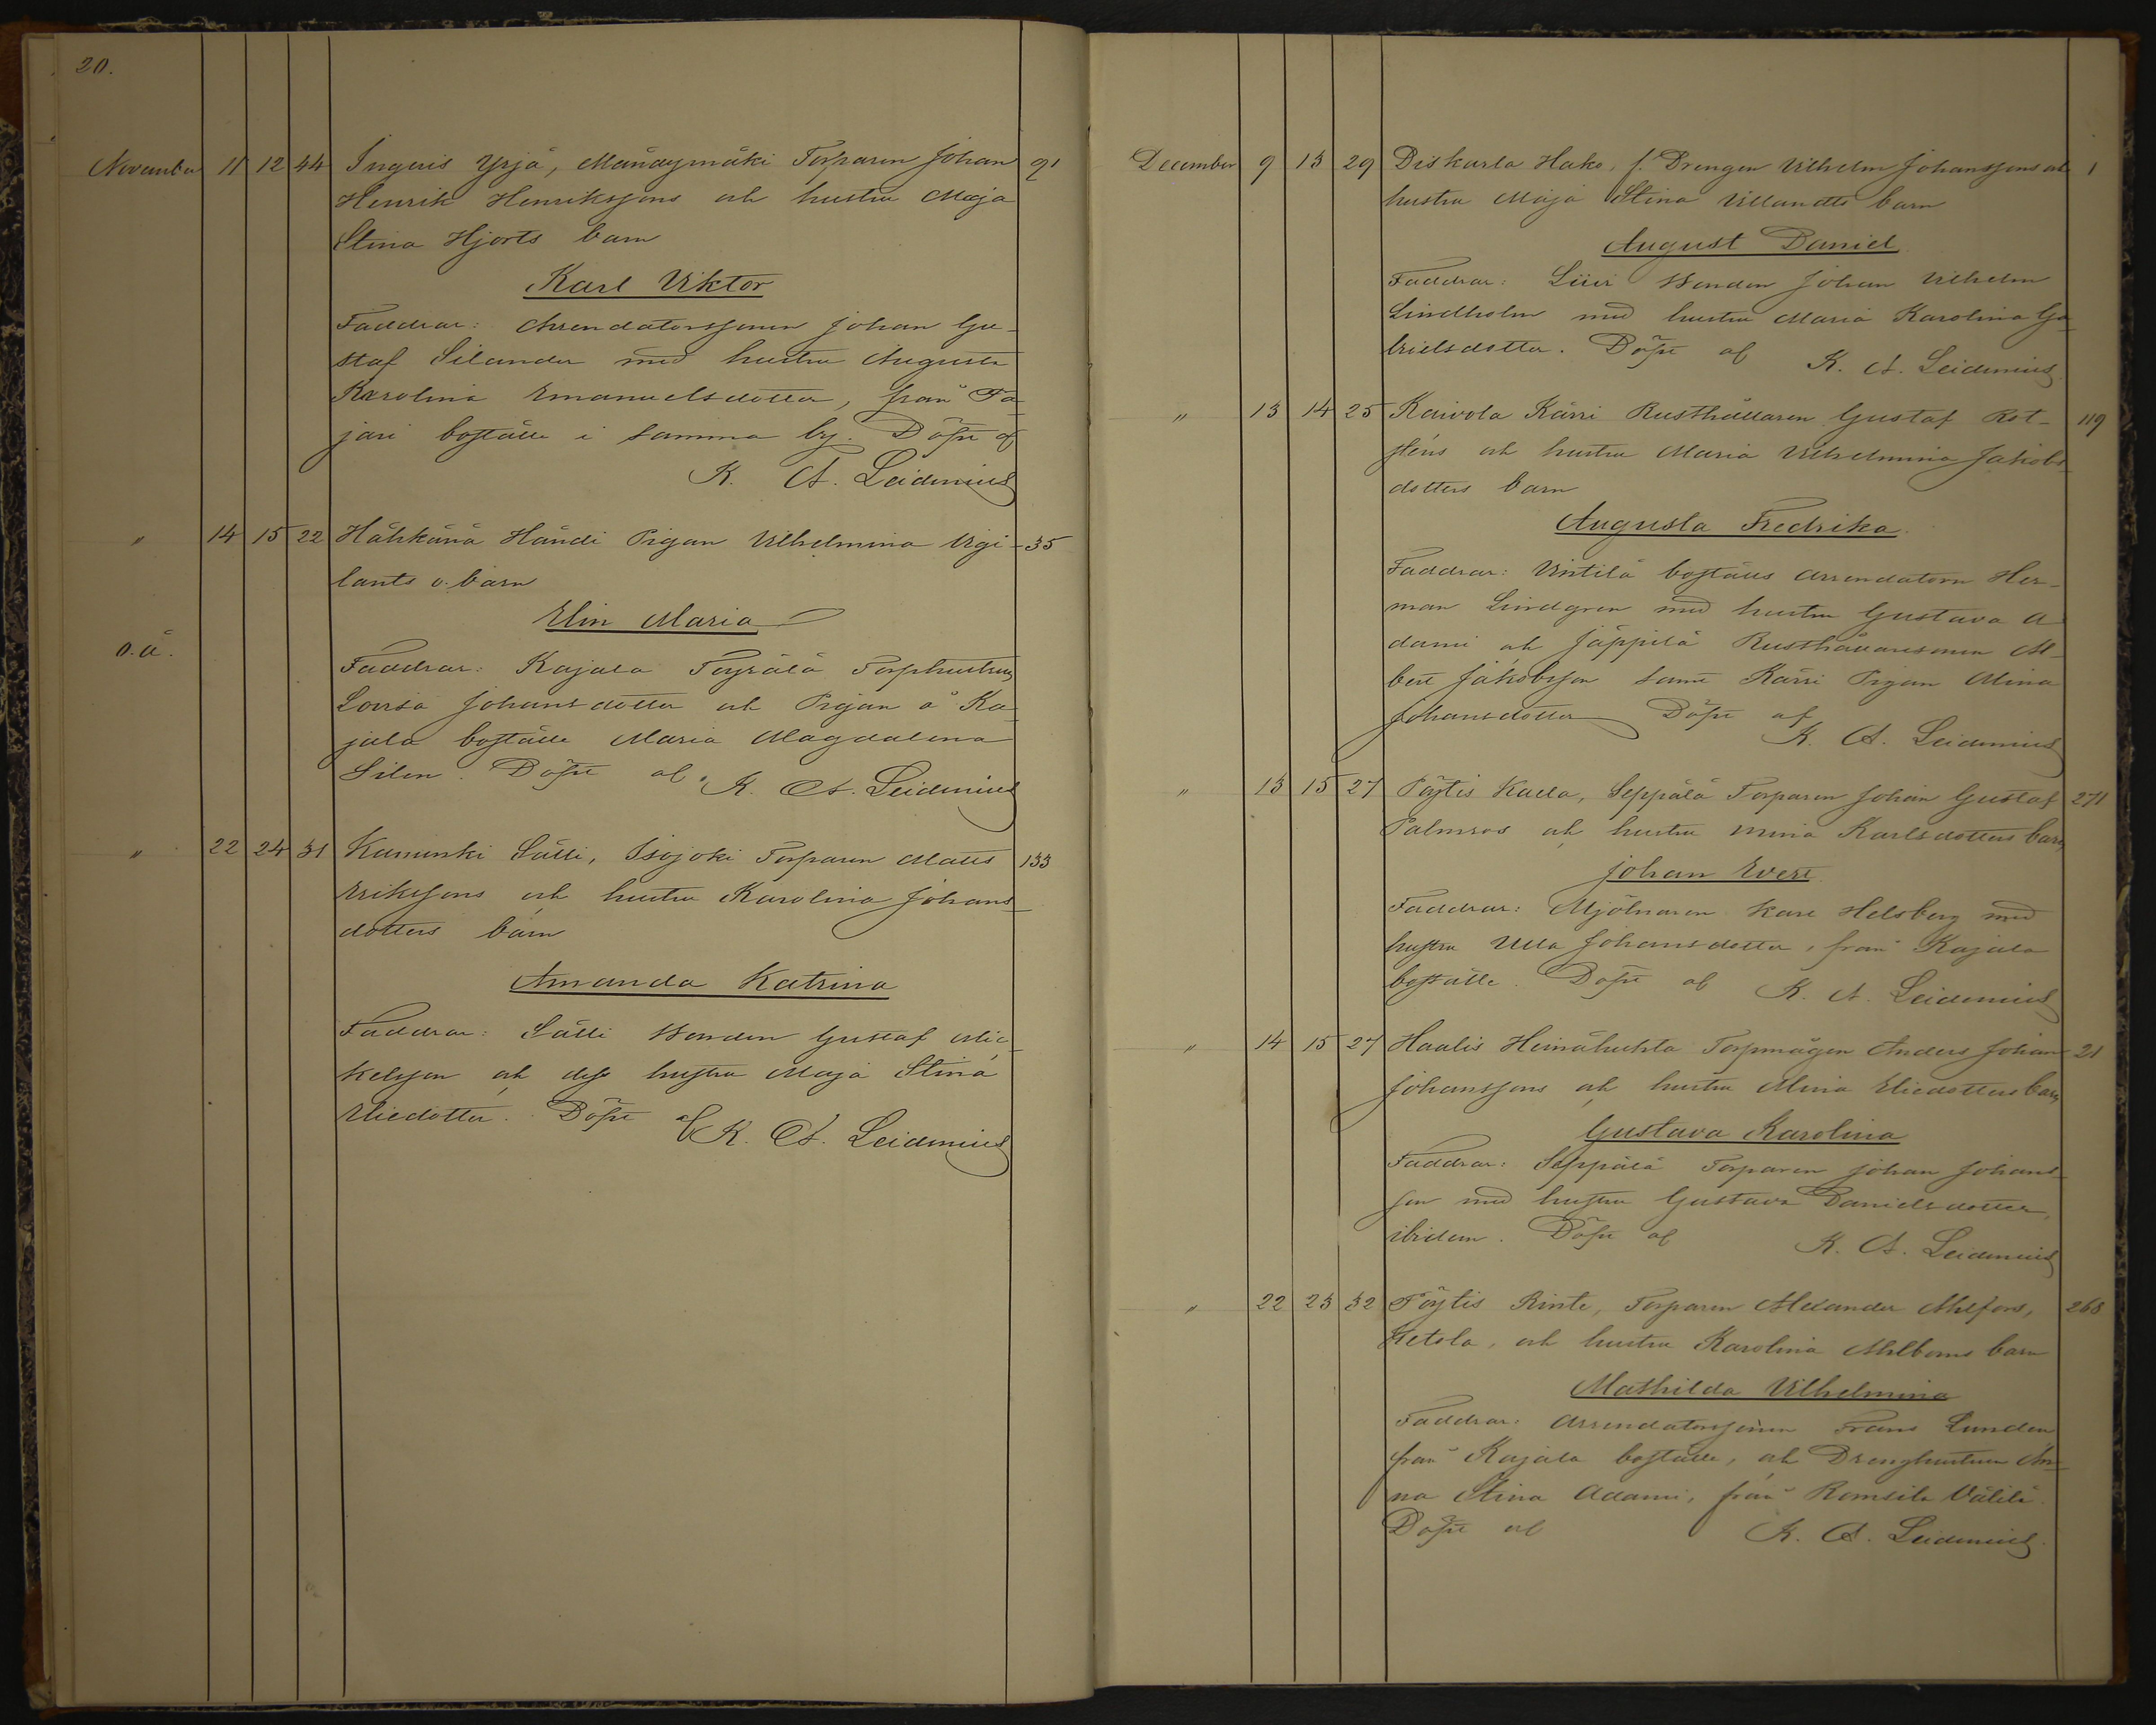 20.
November 11 12 44 Inguris Yrjä, Mändymäki Torparen Johan 91
Henrik Henrikssons och hustru Maja
Stina Hjorts barn
Karl Viktor
Faddrar: Arrendatorssonen Johan Gu-
staf Silander med hustru Augusta
Karolina Emanuelsdotter, från Ta-
jari boställe i samma by. Döpt af
K. A. Leidenius
" 14 15 22 Hähkänä Händi Pigan Vilhelmina Vigi- 35
lants o. barn
Elin Maria
o. ä.
Faddrar: Kajala Töyrälä Torphustrun
Lovisa Johansdotter och Pigan å Ka-
jala boställe Maria Magdalena
Silen. Döpt af K. A. Leidenius
" 22 24 31 Kanunki Sälli, Isojoki Torparen Matts 133
Erikssons och hustru Karolina Johans-
dotters barn
Amanda Katrina
Faddrar: Sälli Bonden Gustaf Mic-
kelsson och dess hustru Maja Stina
Eliedotter. Döpt af K. A. Leidenius
December 9 13 29 Diskarla Hako, f. Drengen Vilhelm Johanssons och 1
hustru Maja Stina Villandts barn
August Daniel
Faddrar: Liiri Bonden Johan Vilhelm
Lindholm med hustru Maria Karolina Ga-
brielsdotter. Döpt af K. A. Leidenius
" 13 14 25 Kaivola Kärri Rusthållaren Gustaf Rot- 119
sténs och hustru Maria Vilhelmina Jakobs-
dotters barn
Augusta Fredrika
Faddrar: Vintilä boställs arrendatorn Her-
man Lindgren med hustru Gustava A-
dami och Jäppilä Rusthållaresonen Al-
bert Jakobsson samt Kärri Pigan Mina
Johansdotter Döpt af
K. A. Leidenius
" 13 15 27 Pöytis Kalla, Seppälä Torparen Johan Gustaf 271
Palmros och hustru Mina Karlsdotters barn
Johan Evert
Faddrar: Mjölnaren Karl Helsberg med
hustru Ulla Johansdotter, från Kajala
boställe. Döpt af K. A. Leidenius
" 14 15 27 Haalis Heinähuhta Torpmågen Anders Johan 21
Johanssons och hustru Mina Eliedotters barn
Gustava Karolina
Faddrar: Seppälä Torparen Johan Johans-
son med hustru Gustava Danielsdotter,
ibidem. Döpt af K. A. Leidenius
" 22 23 32 Pöytis Rinte, Torparen Alexander Ahlfors, 268
Ketola, och hustru Karolina Ahlboms barn
Mathilda Vilhelmina
Faddrar: Arrendatorssonen Frans Lunden
från Kajala boställe, och Drenghustrun An-
na Stina Adami, från Romsila Välilä.
Döpt af K. A. Leidenius.